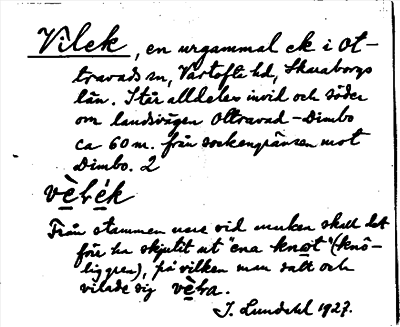 Vilek, en urgammal ek i Ot-
travads sn, Vartofta hd, Skaraborgs
län. Står alldeles invid och söder
om landsvägen Ottravad-Dimbo
ca 60 m. från sockengränsen mot
Dimbo. 2
vè̱lé̱k
Från stammen nere vid marken skall det
förr ha skjutit ut "ena knọt" (knö-
lig gren), på vilken man satt och
vilade sig vè̱la.
J. Lundahl 1927.